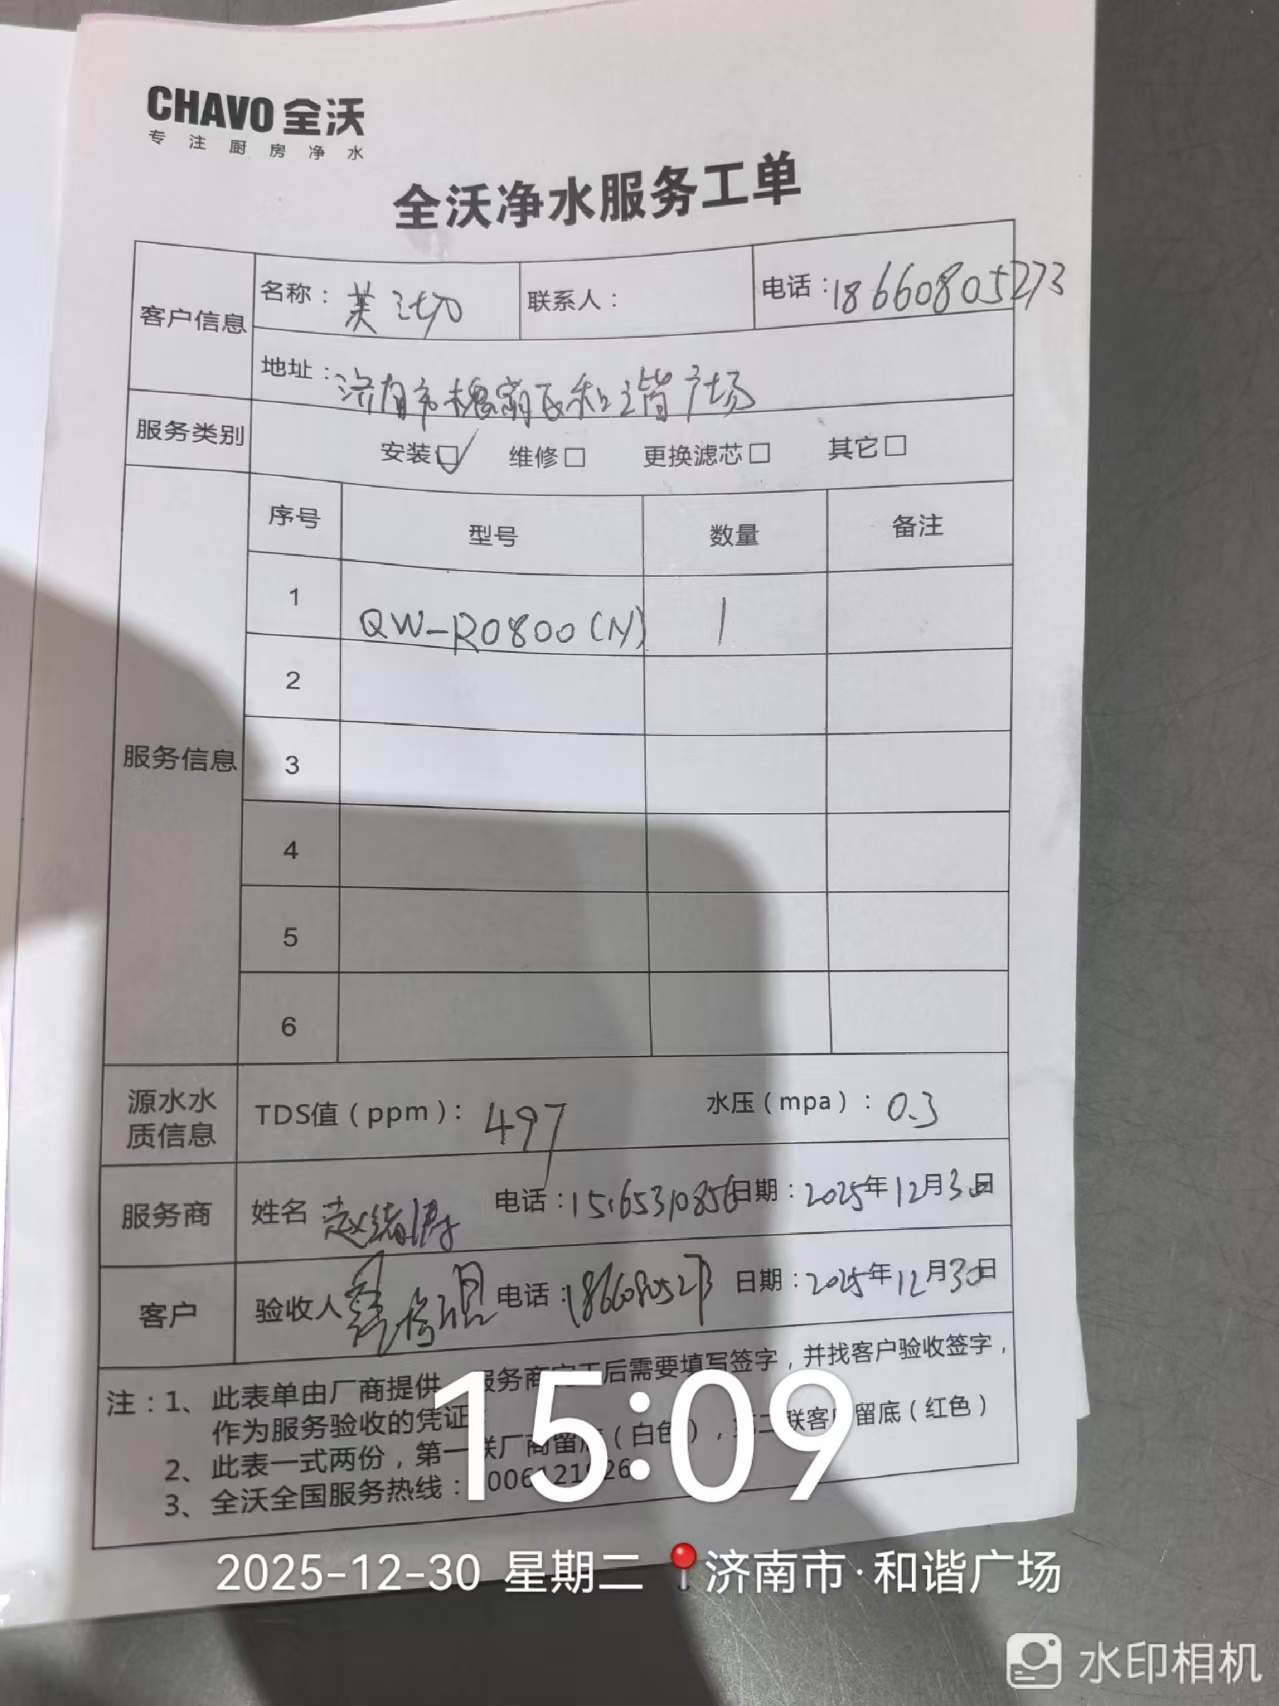 CHAVO 全沃
专注厨房净水
全沃净水服务工单
客户信息 名称： 联系人： 电话：18660805273
地址：济南市槐荫区和谐广场
服务类别 安装☑ 维修□ 更换滤芯□ 其它□
服务信息 序号 型号 数量 备注
1 QW-RO800(N) 1
2
3
4
5
6
源水水质信息 TDS值（ppm）：497 水压（mpa）：0.3
服务商 姓名 电话： 日期：2025年12月30日
客户 验收人 电话：18660805273 日期：2025年12月30日
注：1、此表单由厂商提供 服务商完工后需要填写签字，并找客户验收签字，
作为服务验收的凭证
2、此表一式两份，第一联厂商留底（白色），第二联客户留底（红色）
3、全沃全国服务热线：
15:09
2025-12-30 星期二 济南市·和谐广场
水印相机